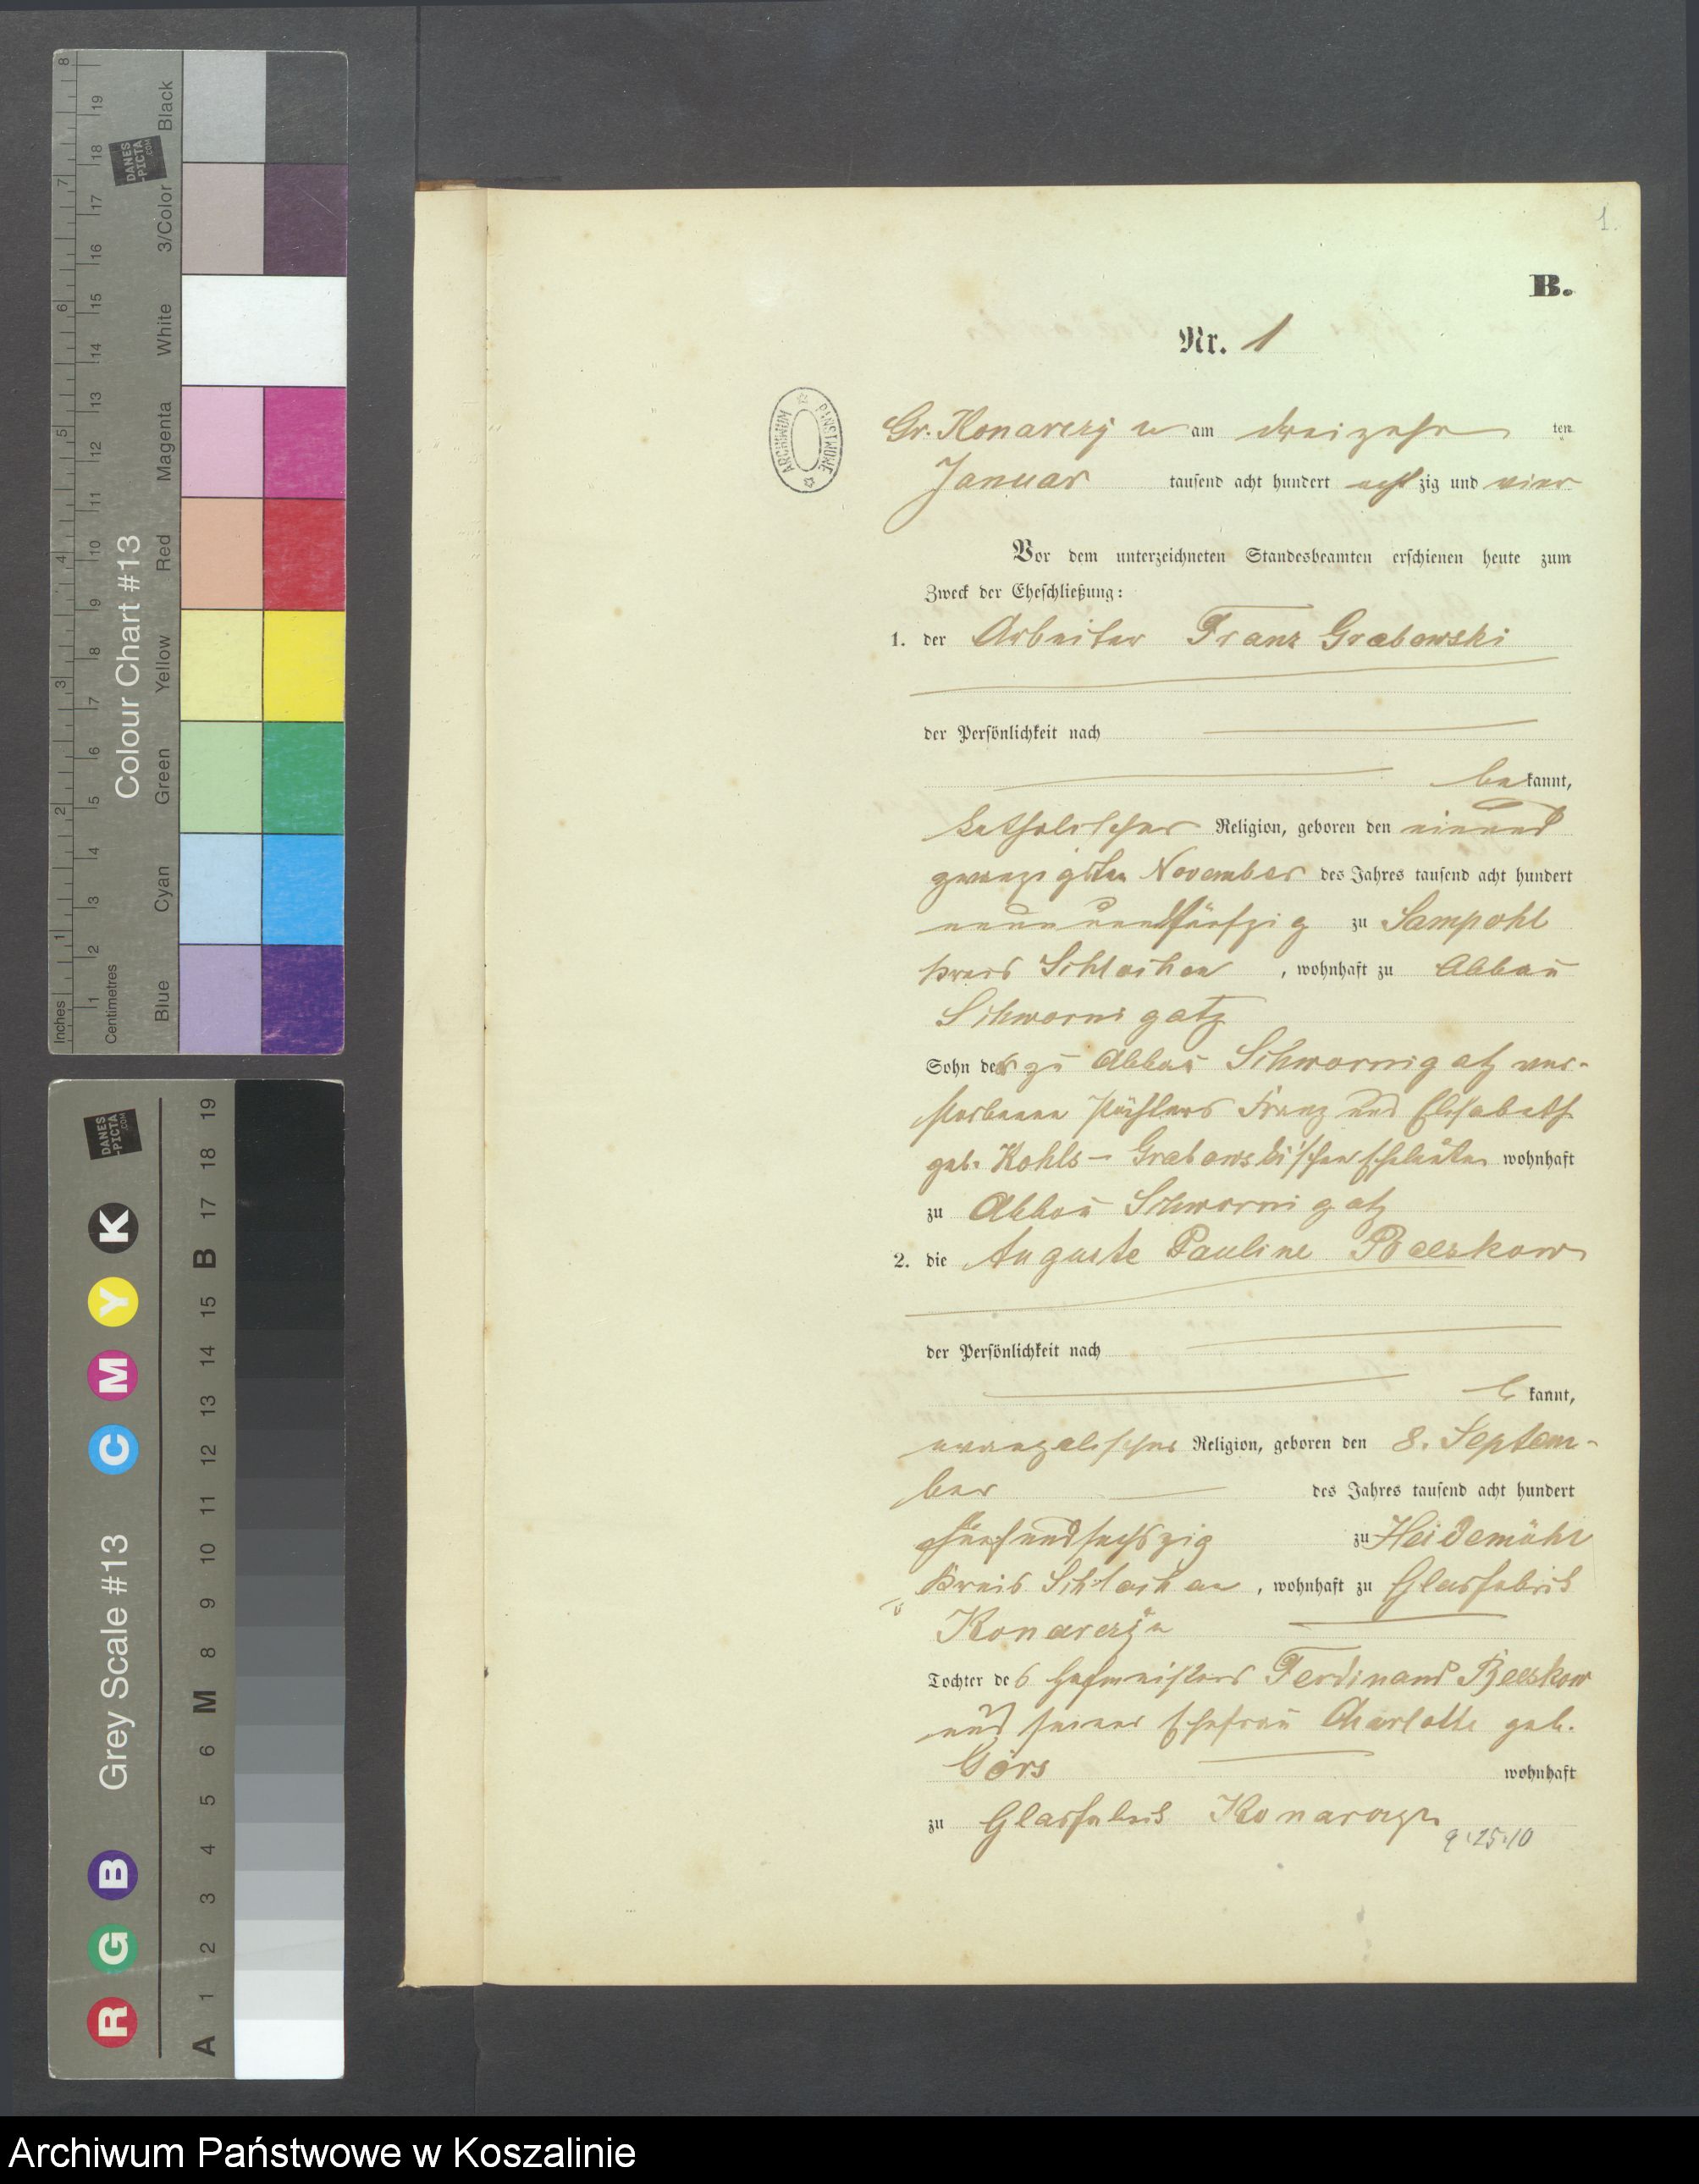 8
19
Black
DANES
-PICTA
.COM
18
7
17
3/Color
16
6
15
White
14
13
Magenta
5
12
11
Colour Chart #13
4
10
Red
9
Yellow
8
3
7
6
Green
2
5
4
Cyan
3
1
2
Blue
1
Inches
Centimetres
DANES
-PICTA
.COM
19
18
K
17
B
Y
15
M
14
13
C
12
11
Grey Scale #13
10
9
8
M
6
5
B
4
3
G
2
R
1
A
1.
B.
Nr. 1
ARCHIWUM PAŃSTWOWE
Gr. Konarczyn am dreizehn ten
Januar tausend acht hundert achtzig und vier
Vor dem unterzeichneten Standesbeamten erschienen heute zum
Zweck der Eheschließung:
1. der Arbeiter Franz Grabowski
der Persönlichkeit nach
bekannt,
katholischer Religion, geboren den einund
zwanzigsten November des Jahres tausend acht hundert
neunundfünfzig zu Sampohl
Kreis Schlochau, wohnhaft zu Abbau
Schwornigatz
Sohn der zu Abbau Schwornigatz ver-
storbenen Franz und Elisabeth
geb. Kohls - Grabowski'schen Eheleute wohnhaft
zu Abbau Schwornigatz
2. die Auguste Pauline Beeskow
der Persönlichkeit nach
b kannt,
evangelischer Religion, geboren den 8. Septem-
ber des Jahres tausend acht hundert
fünfundsechszig zu Heidemühl
Kreis Schlochau, wohnhaft zu Glasfabrik
Konarczyn
Tochter des Hofmeisters Ferdinand Beeskow
und seiner Ehefrau Charlotte geb.
Görs wohnhaft
zu Glasfabrik Konarczyn
Archiwum Państwowe w Koszalinie